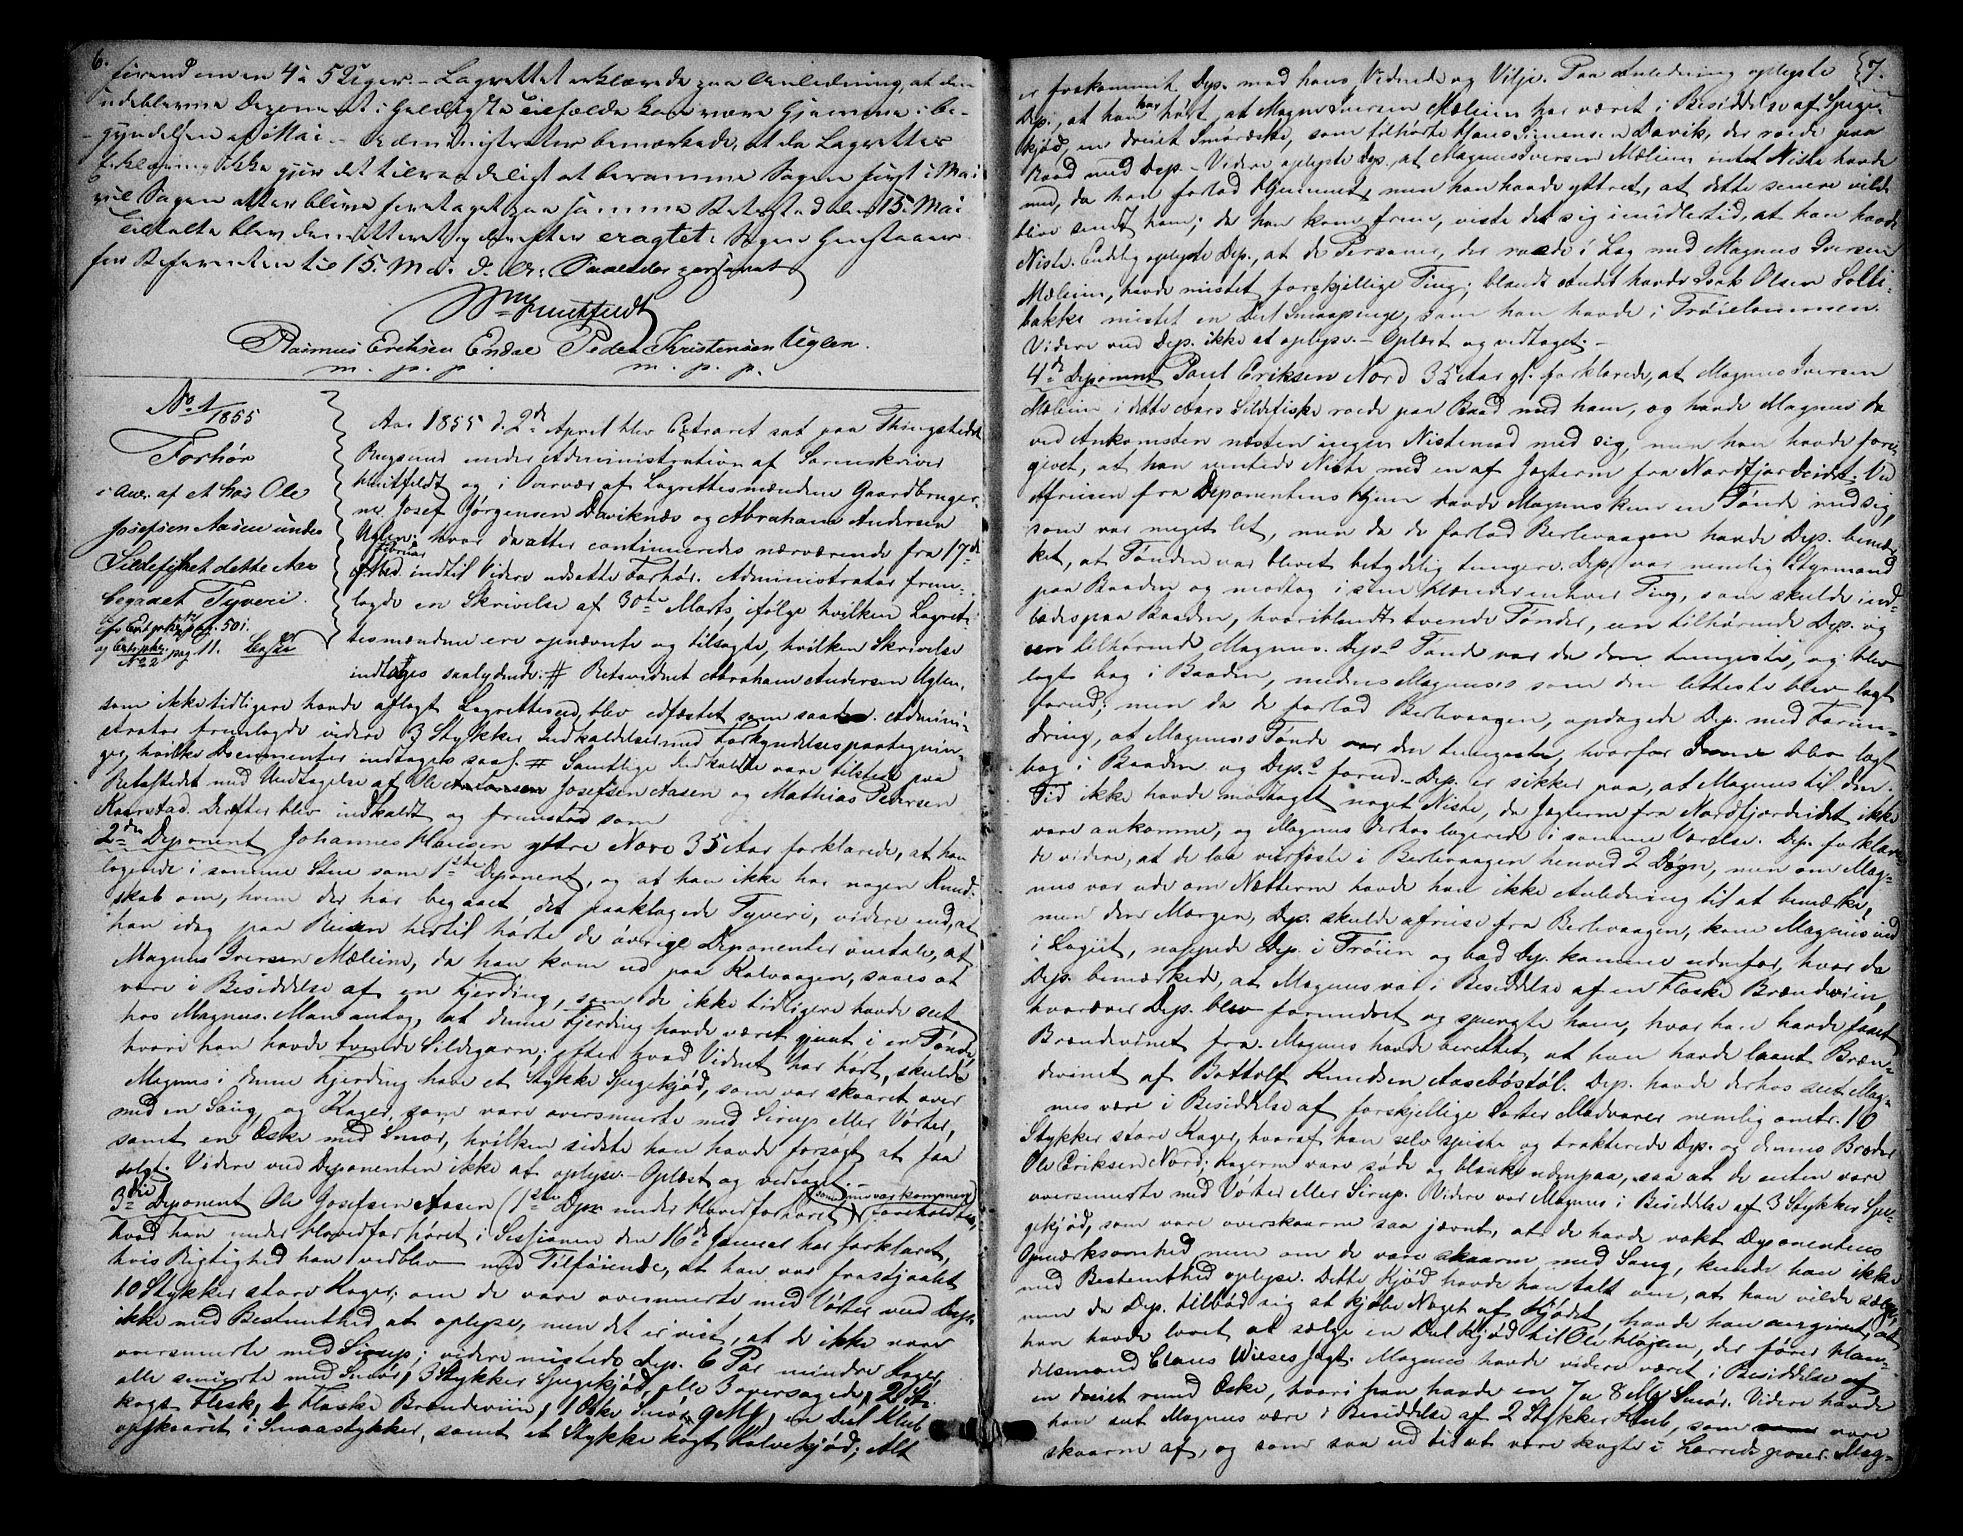 6.
förend om en 4 à 5 Uger. – Lagrettet erklærede paa Anledning, at den
udeblevne Deponent i heldigste Tilfælde kan være hjemme i Be-
gyndelsen af Mai. – Administrator bemærkede, at da Lagrettets
Erklæring ikke gjør det tilraadeligt at beramme Sagen först i Mai
vil Sagen atter blive foretaget paa samme Retssted den 15. Mai
Tiltalte blev demitteret og derefter eragtet: Sagen henstaaer
for Referenten til 15. Mai d. A.
Rasmus Erichsen Endal Peder Kristensen Uglen.
m. p. p. m. p. p.
No 1/1855
Forhör
i Anl. af et hos Ole
Josefsen Aasen under
Sildefisket dette Aar
begaaet Tyveri.
pag. 50 i.
No 2 pag 11.
Aar 1855 d. 2den April blev Extraret sat paa Thingstedet
Rugsund under Administration af Sorenskriver
Huitfeldt og i Overvær af Lagrettesmændene Gaardbruger-
ne Josef Jörgensen Daviknæs og Abraham Andersen
Uglen. hvor da atter continueredes nærværende fra 17de
Februar
indtil Videre udsatte Forhör. Administrator frem-
lagde en Skrivelse af 30te Marts, ifölge hvilken Lagret-
tesmændene ere opnævnte og tilsagte, hvilken Skrivelse
indtages saalydende: # Retsvidnet Abraham Andersen Uglen,
som ikke tidligere havde aflagt Lagretteseed, blev edfæstet som saadan. Admini-
strator fremlagde videre 3 Stykker Indkaldelser med Forkyndelsespaategnin-
ger, hvilke Documenter indtages saal. # Samtlige Indkaldte vare tilstede paa
Retsstedet med Undtagelse af Ole Josefsen Aasen og Mathias Petersen
Kaarstad. Derefter blev indkaldt og fremstod som
2den Deponent Johannes Hansen yttre Nore 35 Aar forklarede, at han
logerede i samme Stue som 1ste Deponent, og at han ikke har nogen Kund-
skab om, hvem der har begaaet det paaklagede Tyveri, videre end, at
han idag paa Reisen hertil hörte de övrige Deponenter omtale, at
Magnus Iversen Mæleim, da han kom ud paa Kalvaagen, saaes at
være i Besiddelse af en Fjerding, som de ikke tidligere havde seet
hos Magnus. Man antog, at denne Fjerding havde været gjemt i en Tönde,
hvori han havde tvende Sildegarn; efter hvad Vidnet har hört, skulde
Magnus i denne Fjerding have et Stykke Spegekjöd, som var skaaret over
med en Saug, og Kager, som vare oversmurte med Sirup eller Vörter,
samt en Æske med Smör, hvilken sidste han havde forsögt at faa
solgt. Videre veed Deponenten ikke at oplyse. – Oplæst og vedtaget. –
3die Deponent Ole Josefsen Aasen (1ste Dep. under Hovedforhöret) som nu var kommen foreholdtes,
hvad han under Hovedforhöret i Sessionen den 16de Januar har forklaret,
hvis Rigtighed han vedblev med Tilföiende, at han var frastjaalet
10 Stykker store Kager; om de vare oversmurte med Vörter veed Dep.
ikke med Bestemthed at oplyse, men det er vist, at de ikke vare
oversmurte med Sirup; videre mistede Dep. 6 Par mindre Kager
alle smurte med Smör, 3 Stykker Spegekjöd, alle 3 oversagede, 2 St:
kogt Flesk, 1 Flaske Brændeviin, 1 Æske Smör 9 Mk, en Deel Klub
opskaaret i Smaastykker, samt et Stykke kogt Kalvekjöd; Alt
7.
er frakommet Dep. mod hans Vidende og Vilje. Paa Anledning oplyste
Dep., at han har hört, at Magnus Iversen Mæleim har været i Besiddelse af Spege-
kjöd, en dreiet Smöræske, som tilhörte Hans Simensen Davik, der roede paa
Baad med Dep. – Videre oplyste Dep., at Magnus Iversen Mæleim intet Niste havde
med, da han forlod Hjemmet, men han havde yttret, at dette senere vilde
blive sendt ham; da han kom frem, viste det sig imidlertid, at han havde
Niste. Endelig oplyste Dep., at de Personer, der roede i Lag med Magnus Iversen
Mæleim, havde mistet forskjellige Ting; blandt andet havde Isak Olsen Solli-
bakke mistet en Deel Smaapenge, som han havde i Tröielommen.
Videre veed Dep. ikke at oplyse. – Oplæst og vedtaget. –
4de Deponent Poul Eriksen Nord 35 Aar gl. forklarede, at Magnus Iversen
Mæleim i dette Aars Sildefiske roede paa Baad med ham, og havde Magnus da
ved Ankomsten næsten ingen Nistemad med sig, men han havde fore-
givet, at han ventede Niste med en af Jagterne fra Nordfjordeidet. Ved
Afreisen fra Deponentens Hjem havde Magnus kun en Tönde med sig,
som var meget let, men da de forlod Berlevaagen havde Dep. bemær-
ket, at Tönden var blevet betydelig tungere. Dep. var nemlig Styrmand
paa Baaden og modtog i sine Hænder enhver Ting, som skulde ind-
lades paa Baaden, hvoriblandt tvende Tönder, en tilhörende Dep. og
een tilhörende Magnus. Dep.s Tönde var da den tungeste, og blev
lagt bag i Baaden, medens Magnus's som den letteste blev lagt
forud; men da de forlod Berlevaagen, opdagede Dep. med Forun-
dring, at Magnus's Tönde var den tungeste, hvorfor denne blev lagt
bag i Baaden og Dep.s forud. – Dep. er sikker paa, at Magnus til den
Tid ikke havde modtaget noget Niste, da Jagterne fra Nordfjordeidet ikke
vare ankomne, og Magnus derhos logerede i samme Værelse. Dep. forklare-
de videre, at de laa veirfaste i Berlevaagen henved 2 Dögn, men om Mag-
nus var ude om Nætterne havde han ikke Anledning til at bemærke,
men den Morgen, Dep. skulde afreise fra Berlevaagen, kom Magnus ind
i Logiet, nappede Dep. i Tröien og bad Dep. komme udenfor, hvor da
Dep. bemærkede, at Magnus var i Besiddelse af en Flaske Brændeviin,
hvorover Dep. blev forundret og spurgte ham, hvor han havde faaet
Brændevinet fra. Magnus havde berettet, at han havde laant Bræn-
devinet af Bottolf Knudsen Aaseböstöl. Dep. havde derhos seet Mag-
nus være i Besiddelse af forskjellige Sorter Madvarer nemlig omtr. 10
Stykker store Kager, hvoraf han selv spiste og trakterede Dep. og dennes Broder
Ole Eriksen Nord; Kagerne vare söde og blanke udenpaa, saa at de enten vare
oversmurte med Vörter eller Sirup. Videre var Magnus i Besiddelse af 3 Stykker Spe-
gekjöd, som vare overskaarne saa jævnt, at de havde vakt Deponentens
Opmærksomhed men om de vare skaarne med Saug, kunde han ikke
med Bestemthed oplyse. Dette Kjöd havde han talt om, at han vilde sælge,
men da Dep. tilböd sig at kjöbe Noget af Kjödet, havde han angivet, at
han havde lovet at sælge en Deel Kjöd til Ole Höjen, der förer Han-
delsmand Claus Wieses Jagt. Magnus havde videre været i Besiddelse af
en dreiet rund Æske, hvori han havde en 7 a 8 Mk Smör. Videre havde
han seet Magnus være i Besiddelse af 2 Stykker Klub, som vare
skaarne af, og som saa ud til at være kogte i Lærredsposer. Mag-